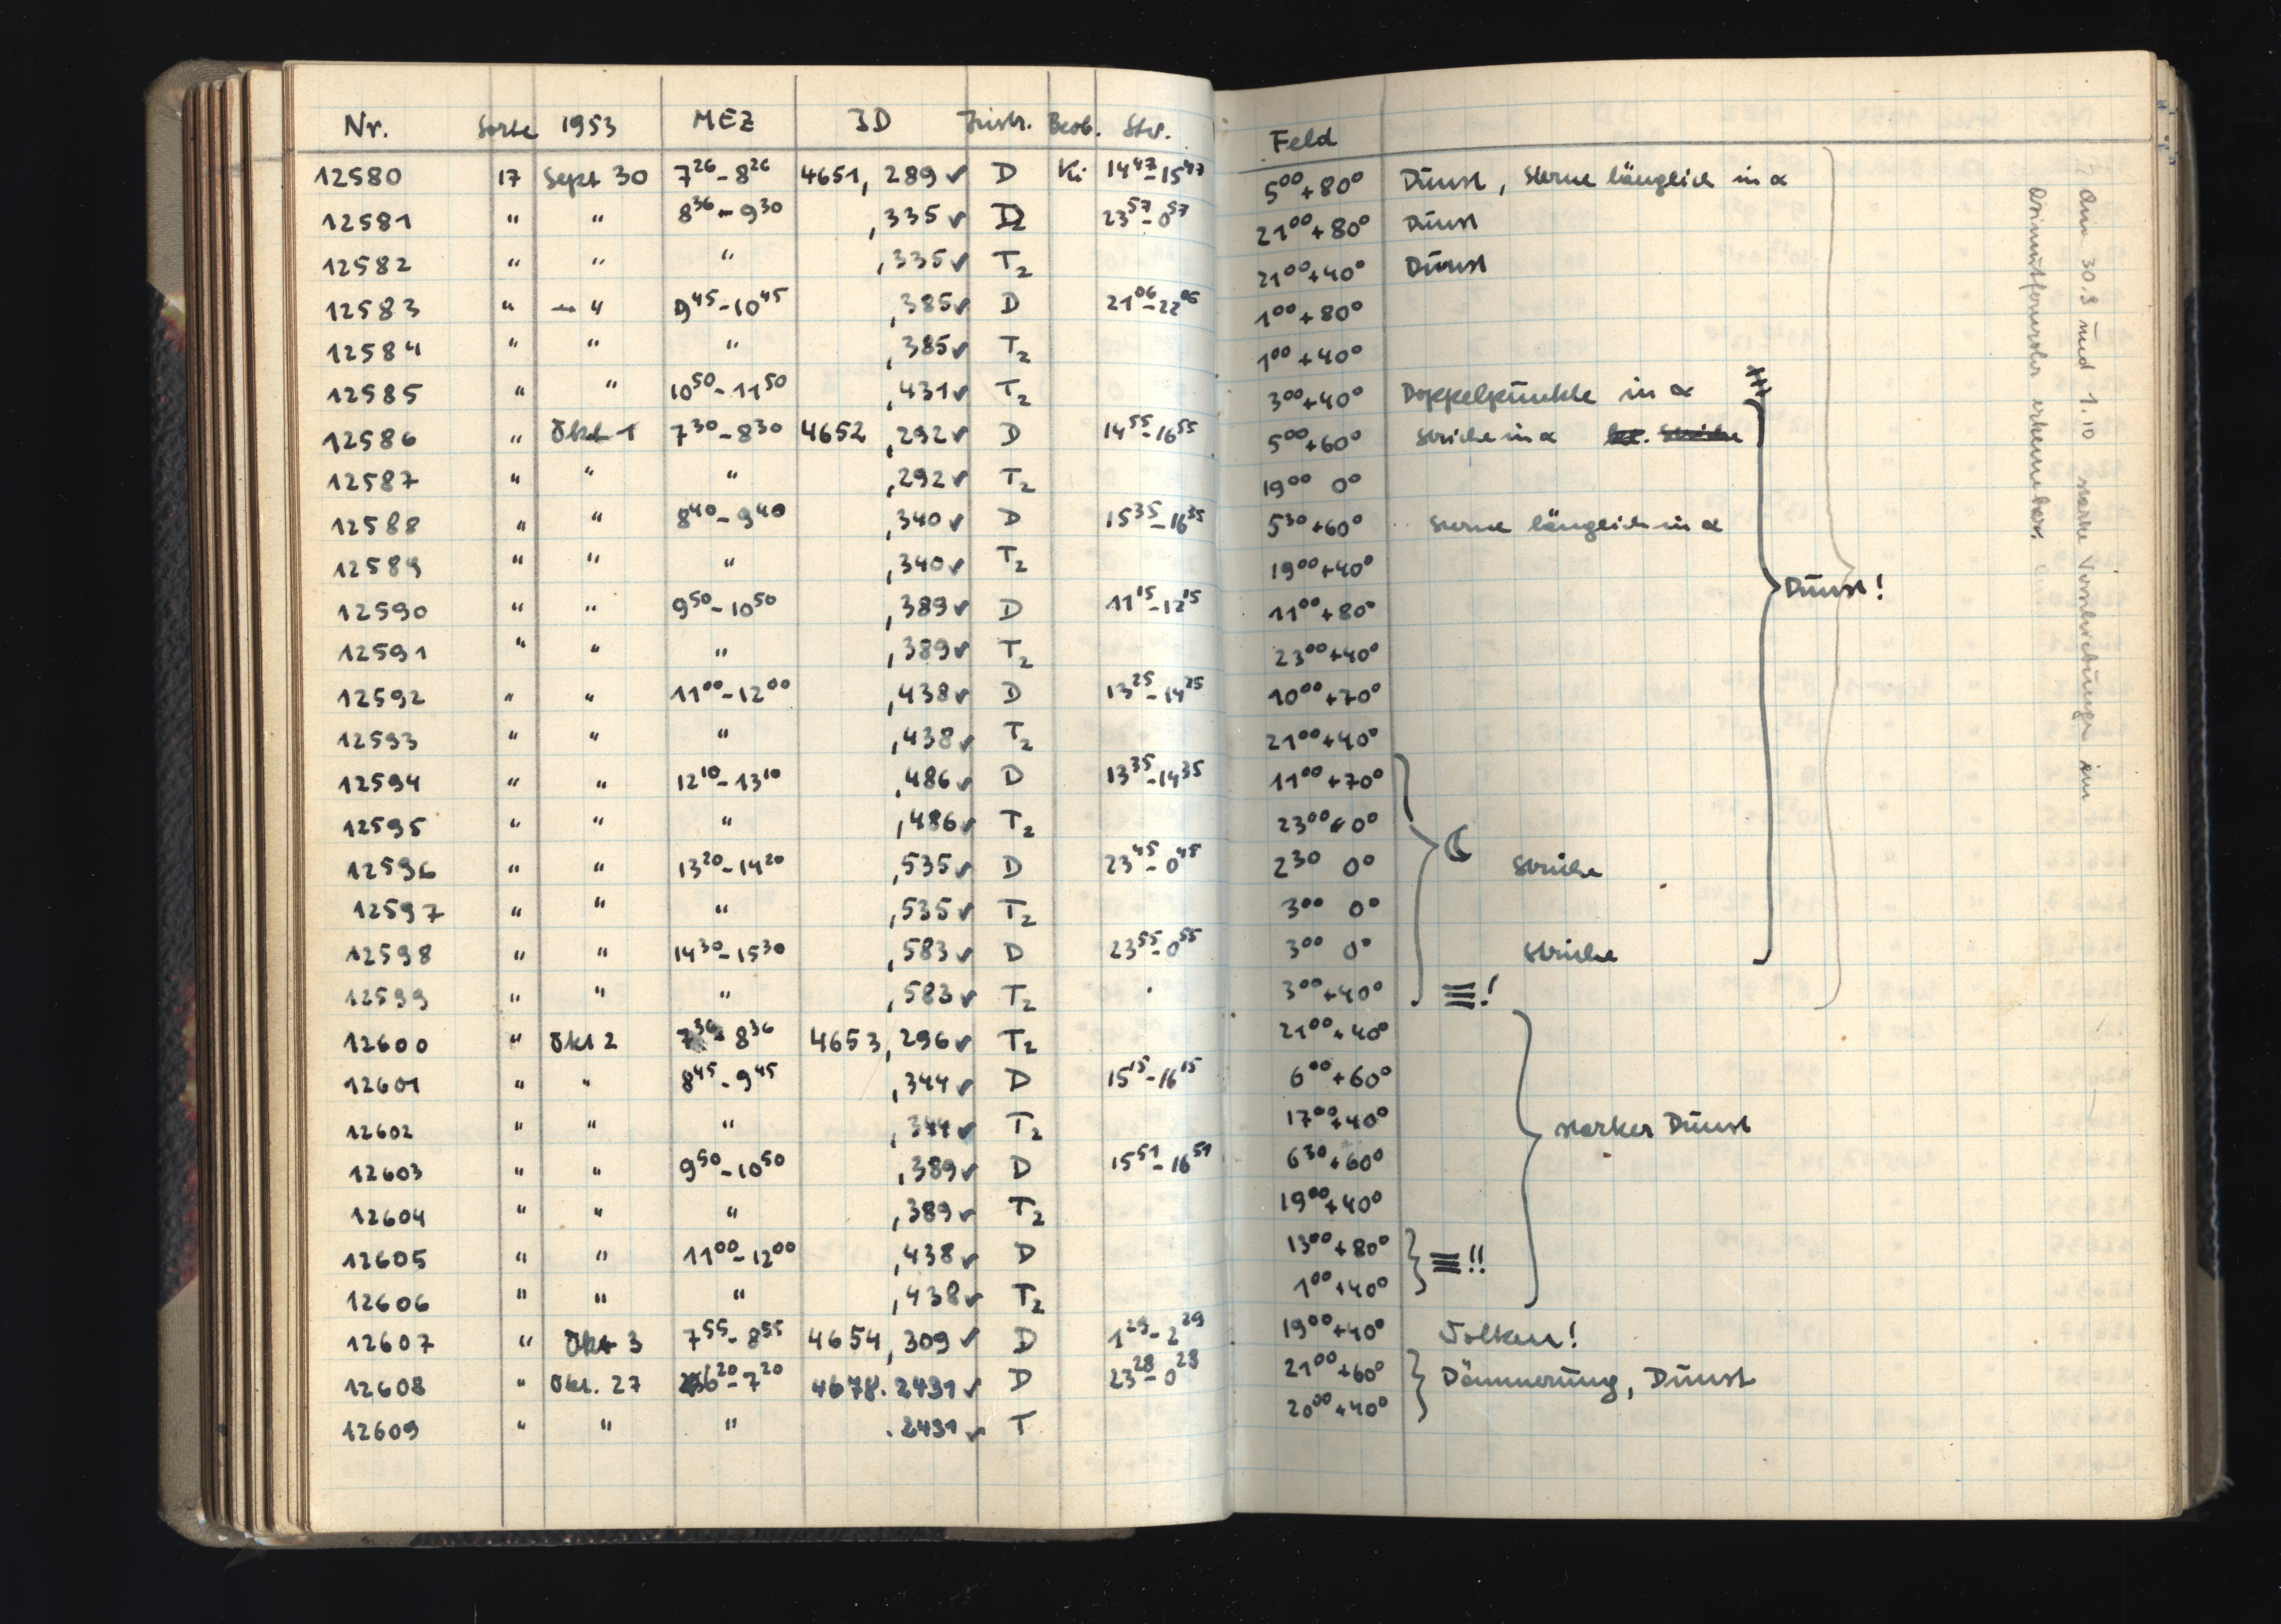 Nr. Sorte 1953 MEZ JD Instr. Beob. Stw. Feld
12580 17 Sept 30 7²⁶-8²⁶ 4651, 289 ✓ D Ki 14⁴⁷-15⁴⁷ 5⁰⁰+80° Dunst, Sterne länglich in α
12581 " " 8³⁶-9³⁰ ,335 ✓ D 23⁵⁷-0⁵⁷ 21⁰⁰+80° Dunst
12582 " " " ,335 ✓ T₂ 21⁰⁰+40° Dunst
12583 " " 9⁴⁵-10⁴⁵ ,385 ✓ D 21⁰⁶-22⁰⁶ 1⁰⁰+80°
12584 " " " ,385 ✓ T₂ 1⁰⁰+40°
12585 " " 10⁵⁰-11⁵⁰ ,431 ✓ T₂ 3⁰⁰+40° Doppelpunkte in α
12586 " Okt 1 7³⁰-8³⁰ 4652 ,292 ✓ D 14⁵⁵-16⁵⁵ 5⁰⁰+60° Striche in α
12587 " " " ,292 ✓ T₂ 19⁰⁰ 0°
12588 " " 8⁴⁰-9⁴⁰ ,340 ✓ D 15³⁵-16³⁵ 5³⁰+60° Sterne länglich in α
12589 " " " ,340 ✓ T₂ 19⁰⁰+40°
Dunst!
12590 " " 9⁵⁰-10⁵⁰ ,389 ✓ D 11¹⁵-12¹⁵ 11⁰⁰+80°
12591 " " " ,389 ✓ T₂ 23⁰⁰+40°
12592 " " 11⁰⁰-12⁰⁰ ,438 ✓ D 13²⁵-14²⁵ 10⁰⁰+70°
12593 " " " ,438 ✓ T₂ 21⁰⁰+40°
12594 " " 12¹⁰-13¹⁰ ,486 ✓ D 13³⁵-14³⁵ 11⁰⁰+70°
12595 " " " ,486 ✓ T₂ 23⁰⁰ 0° ☾
12596 " " 13²⁰-14²⁰ ,535 ✓ D 23⁴⁵-0⁴⁵ 2³⁰ 0° Striche
12597 " " " ,535 ✓ T₂ 3⁰⁰ 0°
12598 " " 14³⁰-15³⁰ ,583 ✓ D 23⁵⁵-0⁵⁵ 3⁰⁰ 0° Striche
12599 " " " ,583 ✓ T₂ 3⁰⁰+40° ≡!
12600 " Okt 2 7³⁶-8³⁶ 4653, 296 ✓ T₂ 21⁰⁰+40°
12601 " " 8⁴⁵-9⁴⁵ ,344 ✓ D 15¹⁵-16¹⁵ 6⁰⁰+60°
12602 " " " ,344 ✓ T₂ 17⁰⁰+40° starker Dunst
12603 " " 9⁵⁰-10⁵⁰ ,389 ✓ D 15⁵¹-16⁵¹ 6³⁰+60°
12604 " " " ,389 ✓ T₂ 19⁰⁰+40°
12605 " " 11⁰⁰-12⁰⁰ ,438 ✓ D 13⁰⁰+80° ≡!!
12606 " " " ,438 ✓ T₂ 1⁰⁰+40°
12607 " Okt 3 7⁵⁵-8⁵⁵ 4654, 309 ✓ D 1²⁹-2²⁹ 19⁰⁰+40° Wolken!
12608 " Okt. 27 6²⁰-7²⁰ 4678. 2431 ✓ D 23²⁸-0²⁸ 21⁰⁰+60° Dämmerung, Dunst
12609 " " " .2431 ✓ T 20⁰⁰+40°
Am 30.9 und 1.10 starke Verschiebungen im
Azimut